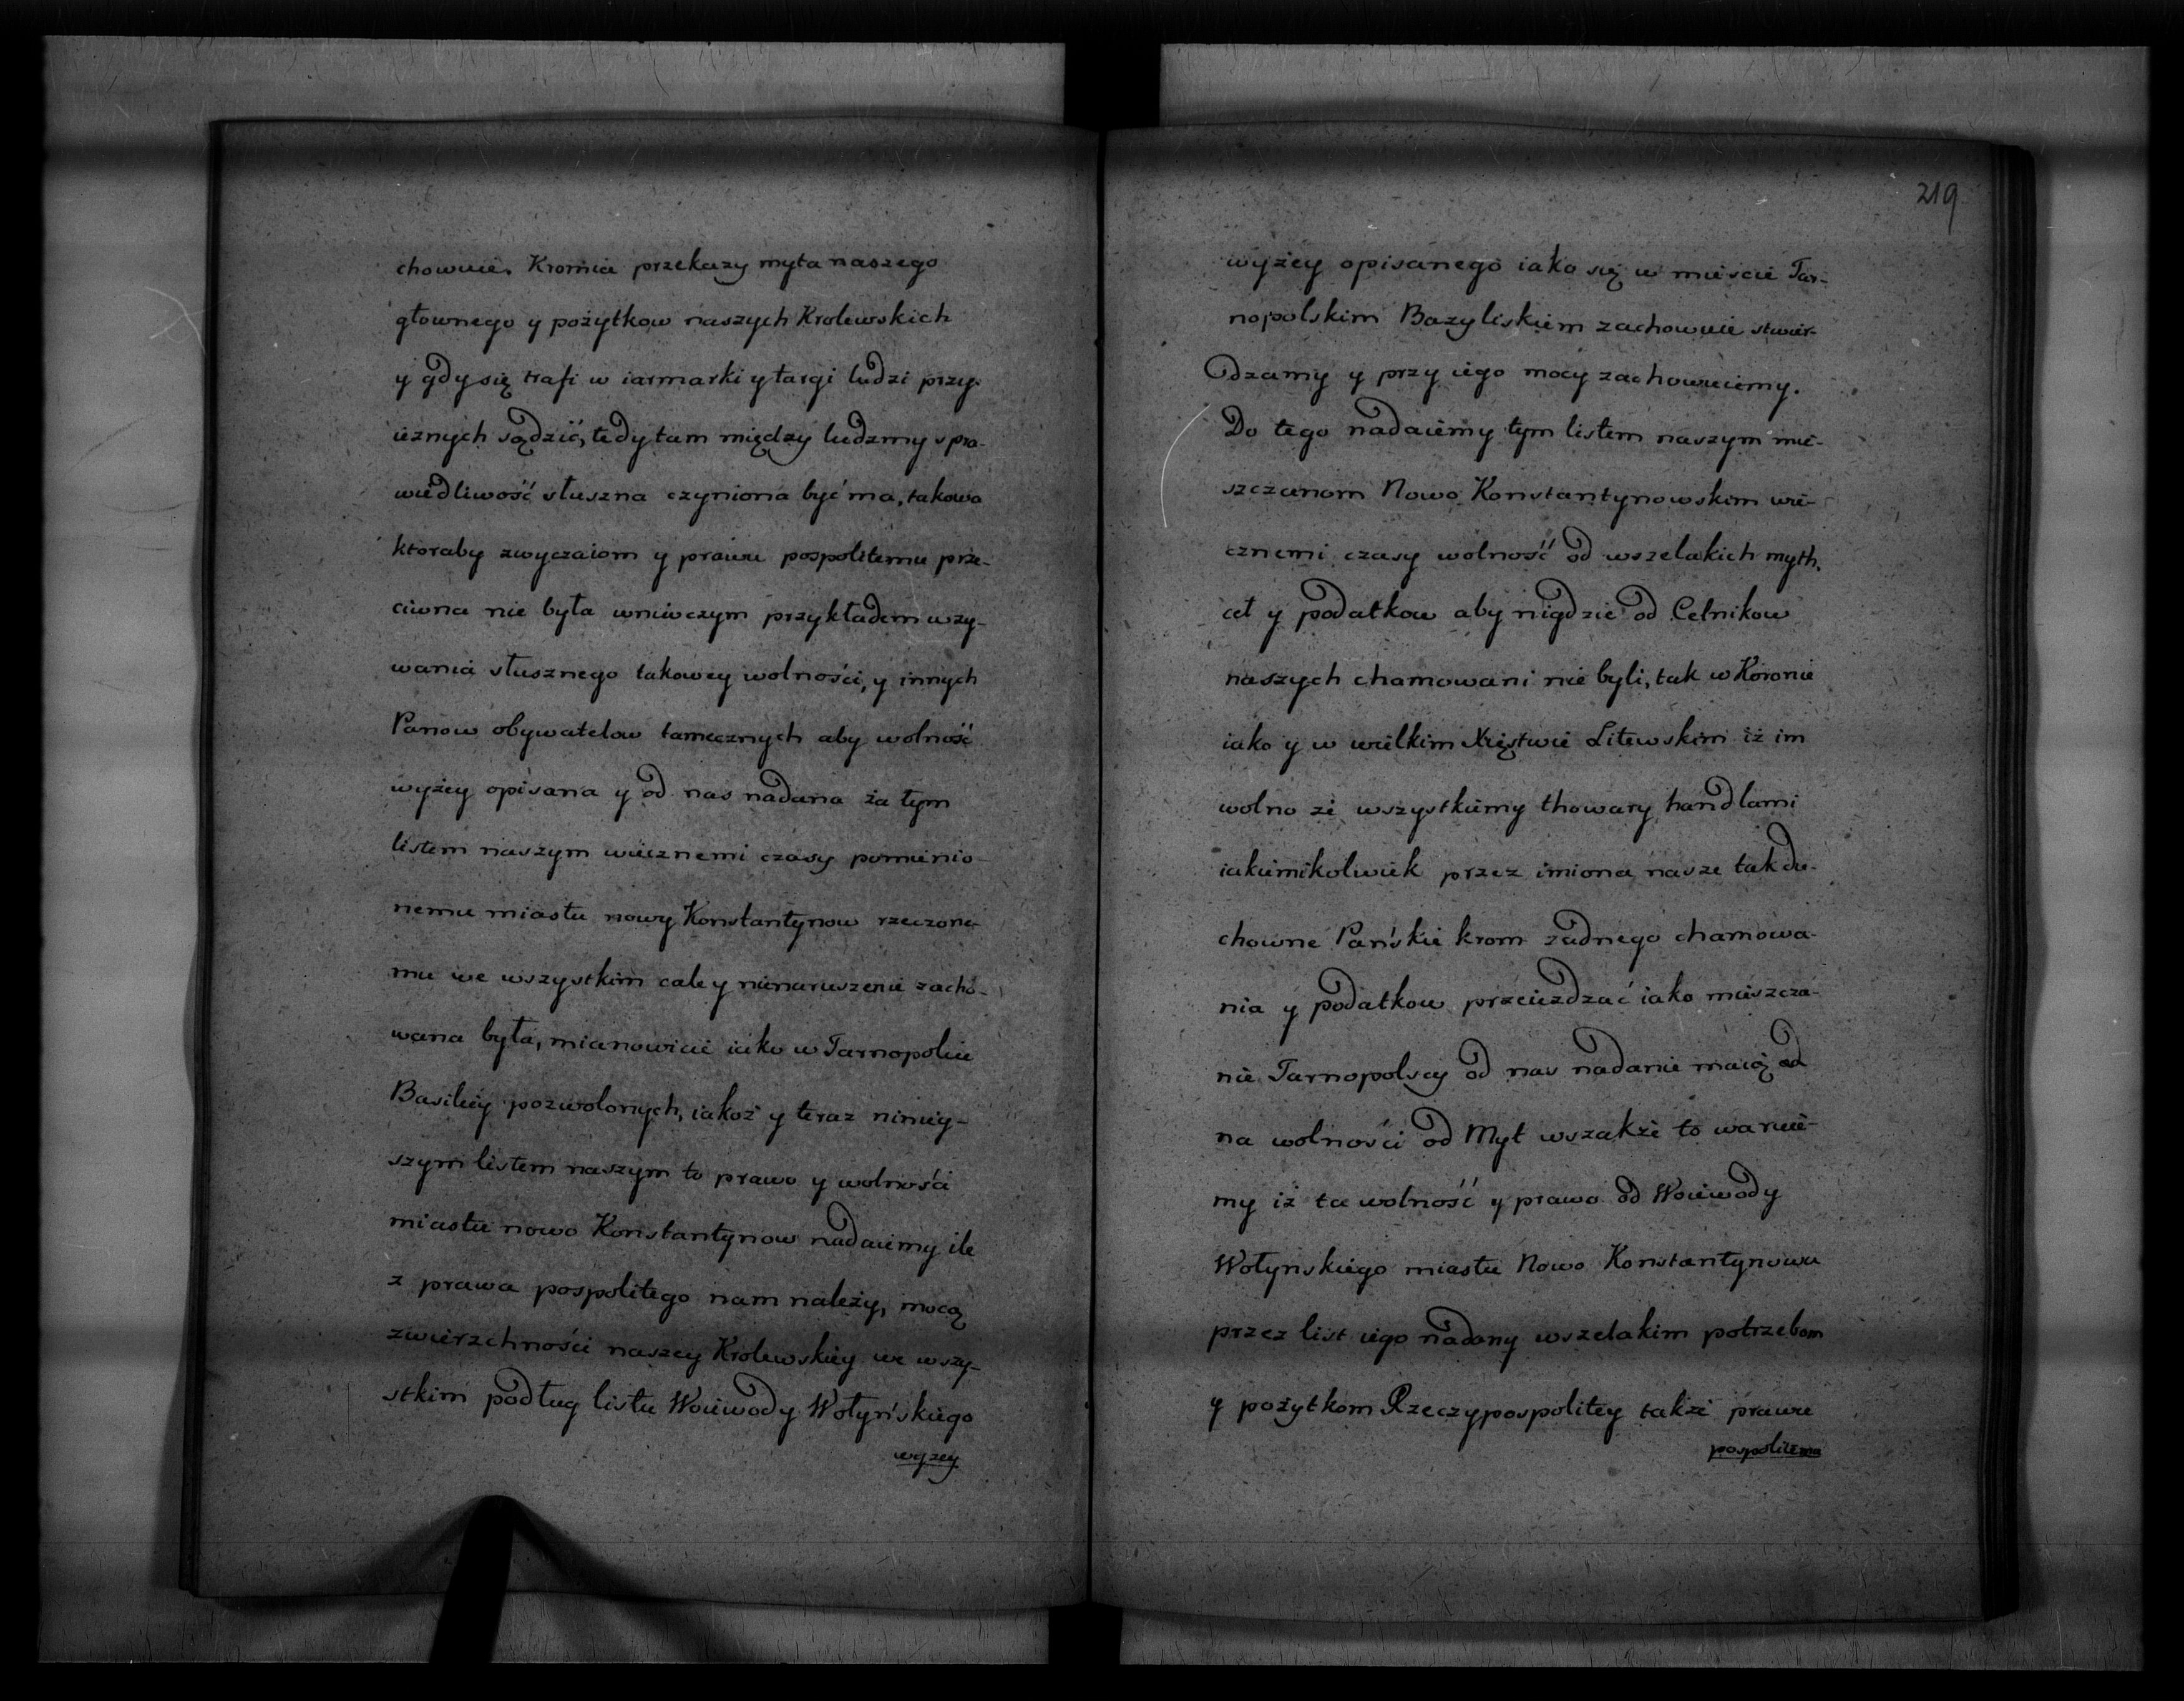 chowuie. Kromia przekazy myta naszego
głownego y pożytkow naszych Krolewskich
y gdy się trafi w iarmarki y targi ludzi przy-
ieznych sądzić, tedy tam między ludzmy spra-
wiedliwość słuszna czyniona być ma, takowa
ktoraby zwyczaiom y prawu pospolitemu prze-
ciwna nie była wniwczym przykładem uzy-
wania słusznego takowey wolności, y innych
Panow obywatelow tamecznych aby wolność
wyżey opisana y od nas nadana za tym
listem naszym wiecznemi czasy pomienio-
nemu miastu nowy Konstantynow rzeczone-
mu we wszystkim cale y nienaruszenie zacho-
wana była, mianowicie iako w Tarnopoliu
Basiliey pozwolonych, iakoż y teraz niniey-
szym listem naszym to prawo y wolności
miastu nowo Konstantynow nadaiemy ile
z prawa pospolitego nam należy, mocą
zwierzchności naszey Krolewskiey we wszy-
stkim podług listu Woiewody Wołyńskiego
wyzey
219
wyżey opisanego iako się w mieście Tar-
nopolskim Bazyliskiem zachowuie stwier-
dzamy y przy iego mocy zachowuiemy.
Do tego nadaiemy tym listem naszym mie-
szczanom Nowo Konstantynowskim wie-
cznemi czasy wolność od wszelakich myth,
ceł y podatkow aby nigdzie od Celnikow
naszych chamowani nie byli, tak w Koronie
iako y w wielkim Xięstwie Litewskim iż im
wolno ze wszystkiemy thowary handlami
iakiemikolwiek przez imiona nasze tak du-
chowne Pańskie krom zadnego chamowa-
nia y podatkow przeiezdzać iako mieszcza-
nie Tarnopolscy od nas nadanie maią od
na wolności od Myt wszakże to waruie-
my iż ta wolność y prawo od Woiewody
Wołynskiego miastu Nowo Konstantynowu
przez list iego nadany wszelakim potrzebom
y pożytkom Rzeczypospolitey także prawu
pospolitemu